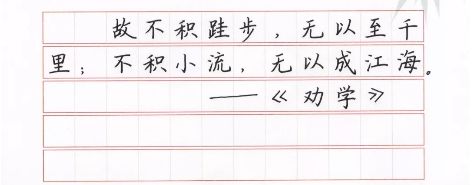 故不积跬步，无以至千
里；不积小流，无以成江海。
——《劝学》